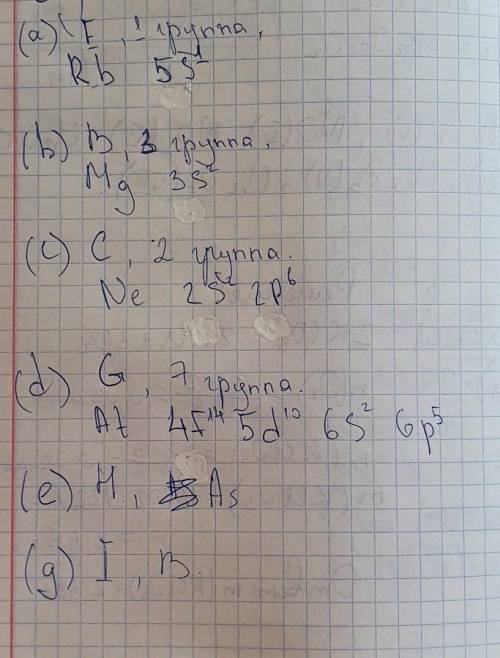 (a) E, 1 группа,
Rb 5s¹
(b) B, 3 группа,
Mg 3s²
(c) C, 2 группа.
Ne 2s² 2p⁶
(d) G, 7 группа.
At 4f¹⁴ 5d¹⁰ 6s² 6p⁵
(e) H, As
(g) I, B.